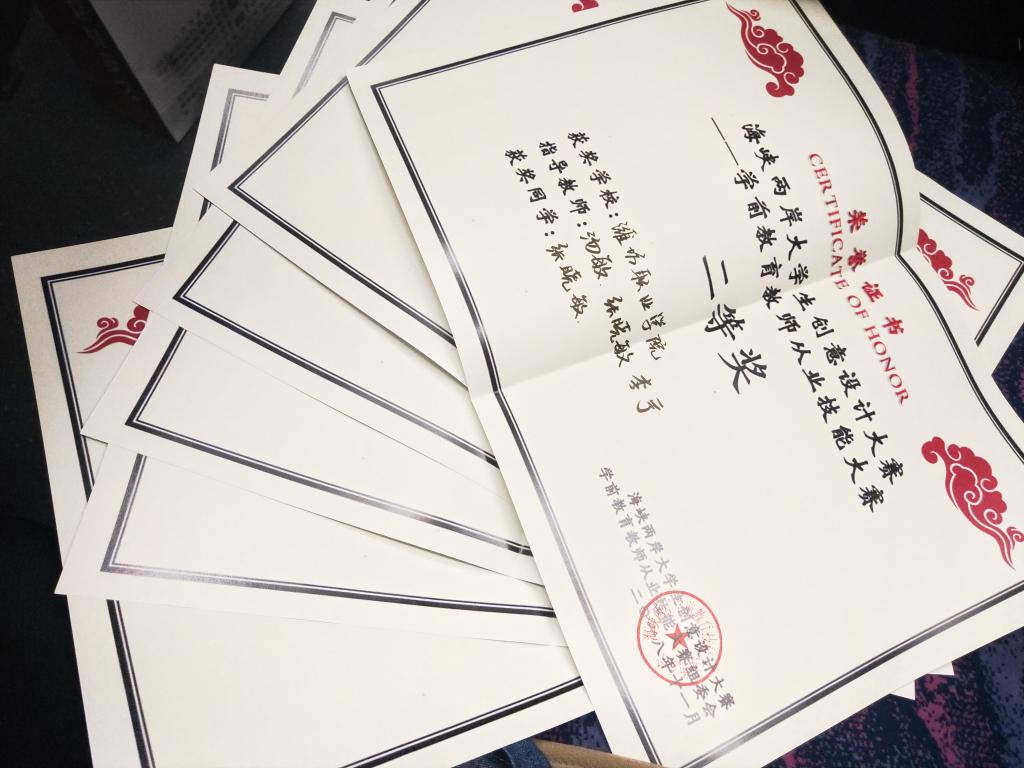 荣誉证书
CERTIFICATE OF HONOR
海峡两岸大学生创意设计大赛
——学前教育教师从业技能大赛
二等奖
获奖学校：潍坊职业学院
指导教师：汤敏 张晓敏 李
获奖同学：张晓敏
海峡两岸大学生创意设计大赛
学前教育教师从业技能大赛组委会
二〇一八年十一月